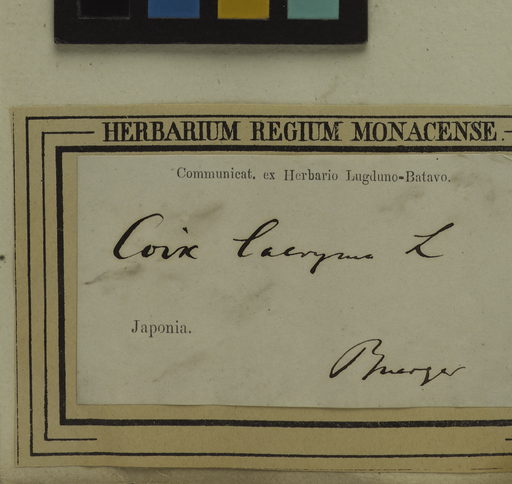 HERBARIUM REGIUM MONACENSE.
Communicat. ex Herbario Lugduno-Batavo.
Coix lacryma L
Japonia.
Buerger